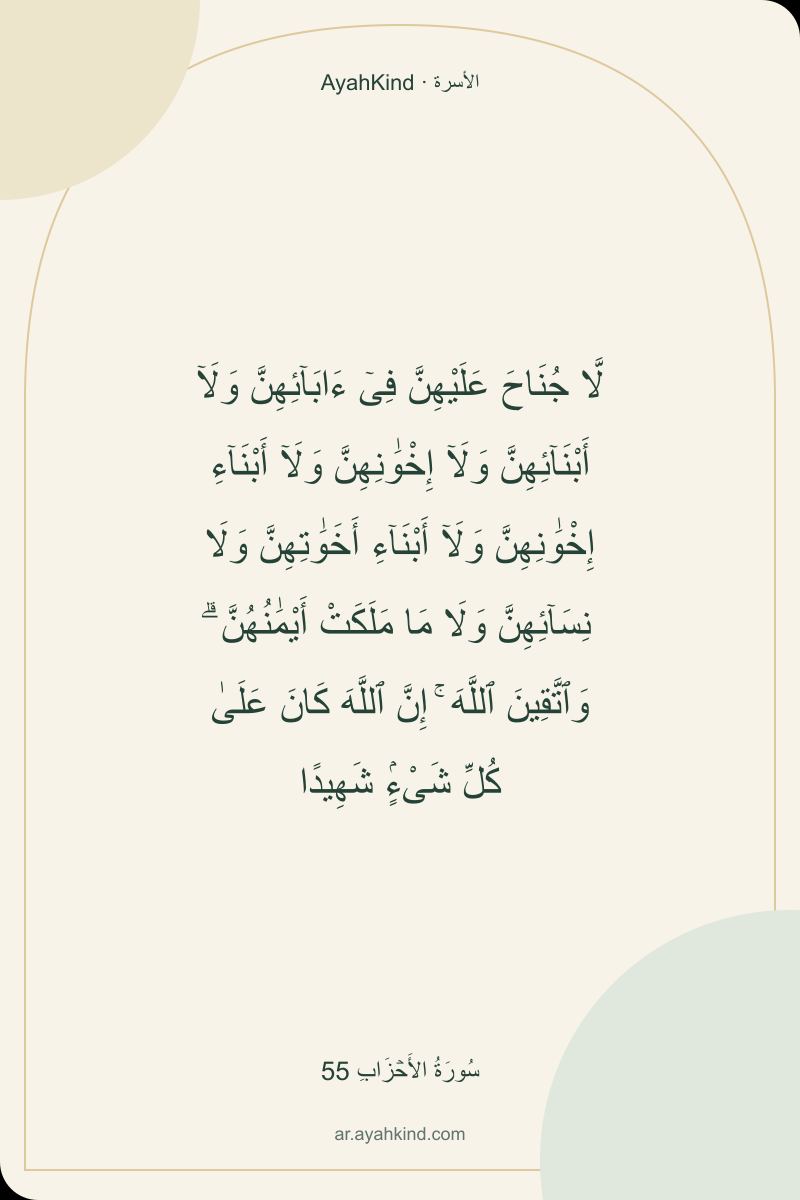 AyahKind · الأسرة
لَّا جُنَاحَ عَلَيْهِنَّ فِىٓ ءَابَآئِهِنَّ وَلَآ
أَبْنَآئِهِنَّ وَلَآ إِخْوَٰنِهِنَّ وَلَآ أَبْنَآءِ
إِخْوَٰنِهِنَّ وَلَآ أَبْنَآءِ أَخَوَٰتِهِنَّ وَلَا
نِسَآئِهِنَّ وَلَا مَا مَلَكَتْ أَيْمَٰنُهُنَّ ۗ
وَٱتَّقِينَ ٱللَّهَ ۚ إِنَّ ٱللَّهَ كَانَ عَلَىٰ
كُلِّ شَىْءٍۢ شَهِيدًا
سُورَةُ الأَحۡزَابِ 55
ar.ayahkind.com